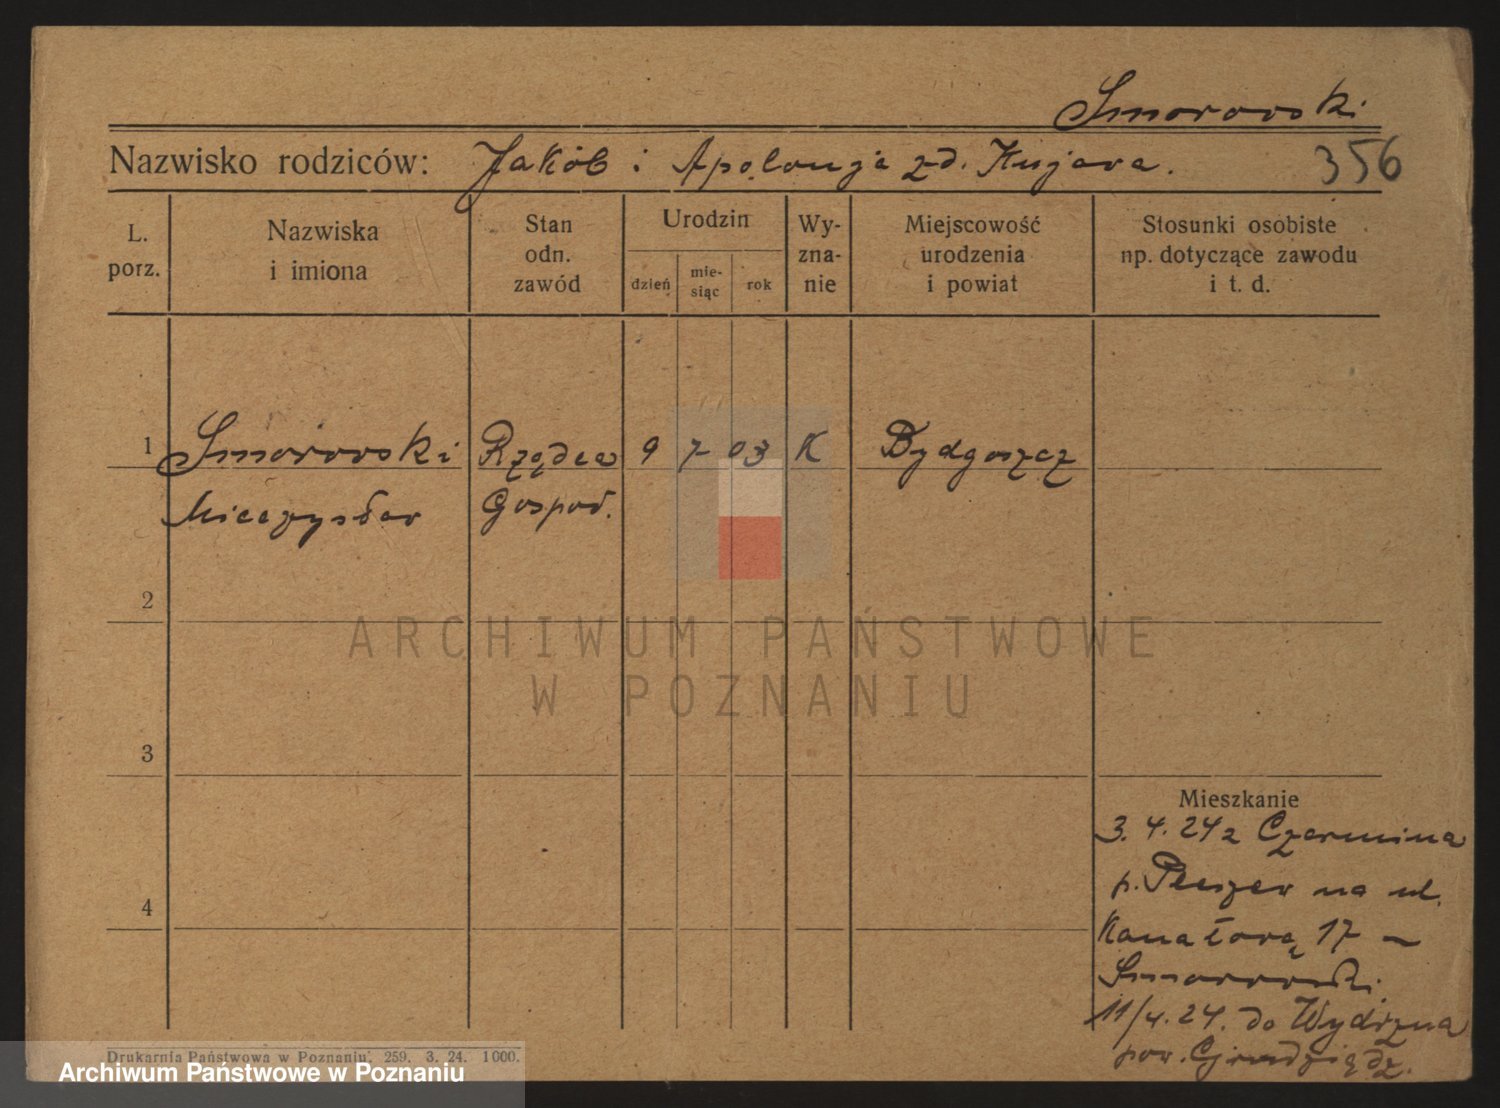 Smorowski
Nazwisko rodziców: Jakób i Apolonja zd. Kujawa. 356
L. porz.
Nazwiska i imiona
Stan odn. zawód
Urodzin
dzień
mie-siąc
rok
Wy-zna-nie
Miejscowość urodzenia i powiat
Stosunki osobiste np. dotyczące zawodu i t. d.
1 Smorowski Rządca 9 7 03 K Bydgoszcz
Mieczysław Gospod.
2
3
4
Mieszkanie
3. 4. 24 z Czermina
p. Pleszew na ul.
Kanałową 17 –
Smorowski
11/4. 24. do Wydrzna
pow. Grudziądz.
Drukarnia Państwowa w Poznaniu. 259. 3. 24. 1000.
ARCHIWUM PAŃSTWOWE
W POZNANIU
Archiwum Państwowe w Poznaniu